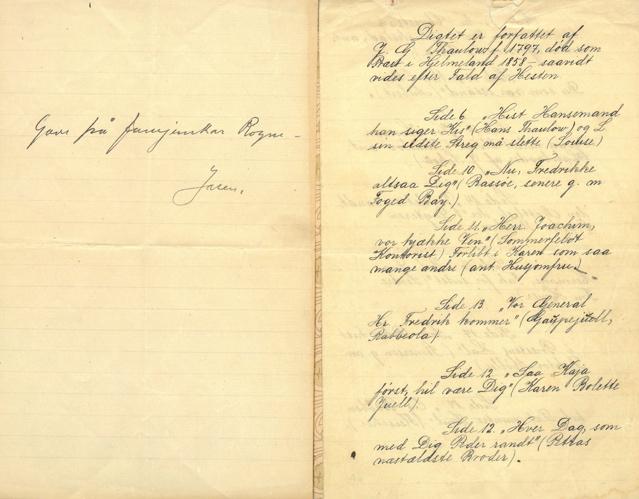 Gave på
Digtet er forfattet af
J. G. Thaulow f. 1797, død som
Præst i Hjelmeland 1858 - saavidt
vides efter Fald af Hesten
Side 6 „Hist Hansemand
han siger His" (Hans Thaulow) og L
sin sidste Streg må slette (Louise)
Side 10 „Nu, Fredrikke
altsaa Dig" (Rassøe, senere g. m
Foged Bay.)
Side 11. „Herr Joachim,
vor tjukke Ven" (Sommerfeldt
Kontorist) Forlibt i Karen som saa
mange andre (ant. Husjomfru).
Side 13 „Vor General
Hr. Fredrik kommer"
Side 12 „Saa Kaja
først, hil være Dig" (Karen Bolette
Juell).
Side 12. „Hver Dag, som
med Dig Peder randt" (Petras
næstældste Broder).